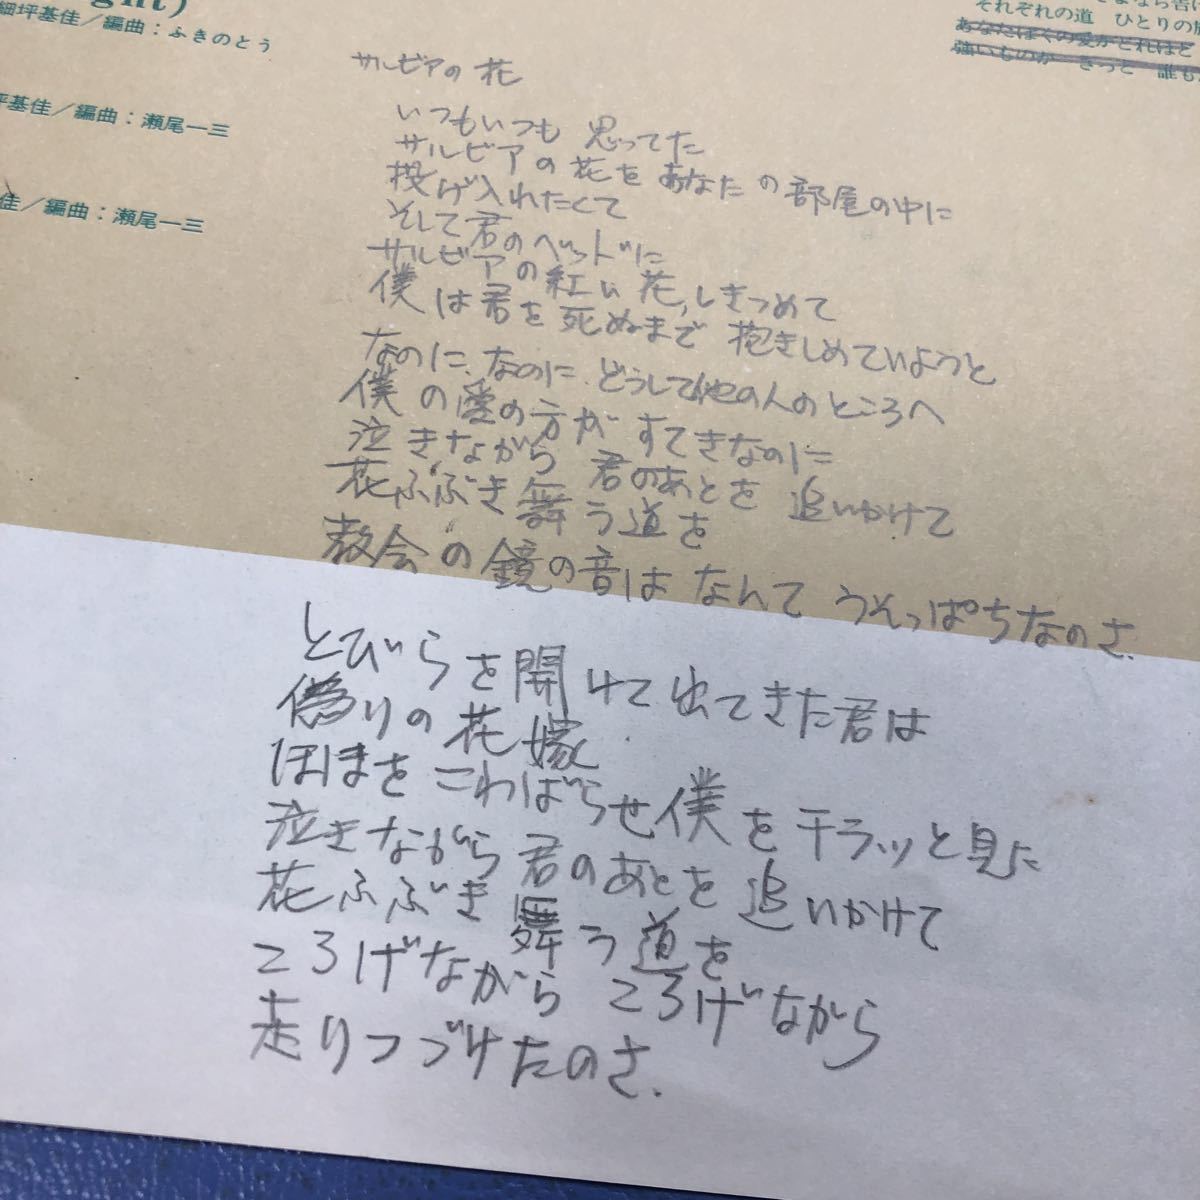 ght)
細坪基佳／編曲：ふきのとう
坪基佳／編曲：瀬尾一三
佳／編曲：瀬尾一三
よなら告げ
それぞれの道　ひとりの旅
あなたぼくの愛がどれほど
強いものか　きっと　誰も
サルビアの花
いつもいつも 思ってた
サルビアの花をあなたの部屋の中に
投げ入れたくて
そして君のベッドに
サルビアの紅い花,しきつめて
僕は君を死ぬまで 抱きしめていようと
なのに、なのに、どうして他の人のところへ
僕の愛の方が すてきなのに
泣きながら 君のあとを 追いかけて
花ふぶき舞う道を
教会の鏡の音は なんて うそっぱちなのさ.
とびらを開けて出てきた君は
偽りの花嫁
ほほをこわばらせ僕をチラッと見た
泣きながら君のあとを追いかけて
花ふぶき舞う道を
ころげながら ころげながら
走りつづけたのさ.